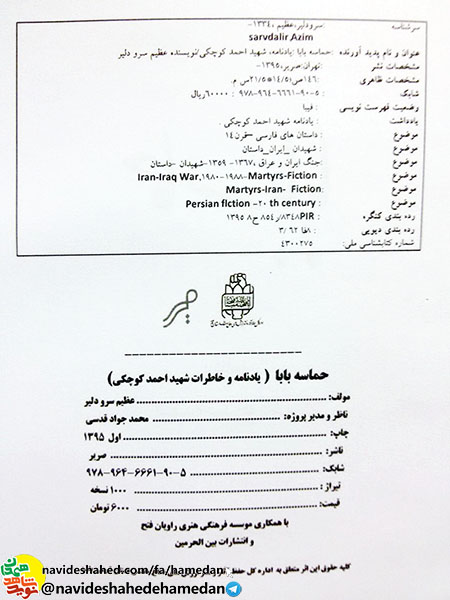 سرشناسه : سرودلیر،عظیم ،۱۳۳۴-
sarvdalir,Azim
عنوان و نام پدید آورنده :حماسه بابا :یادنامه، شهید احمد کوچکی/نویسنده عظیم سرو دلیر
مشخصات نشر :تهران:صریر،۱۳۹۵-
مشخصات ظاهری :۱۴۶ص؛۱۴/۵*۲۱/۵س م.
شابک : ۹۷۸-۹۶۴-۶۶۶۱-۹۰-۵ : ۶۰۰۰۰ریال
وضعیت فهرست نویسی : فیپا
یادداشت : یادنامه شهید احمد کوچکی .
موضوع : داستان های فارسی --قرن۱۴
موضوع : شهیدان _ایران_داستان
موضوع :جنگ ایران و عراق ،۱۳۶۷- ۱۳۵۹-شهیدان -داستان
موضوع Iran-Iraq War,۱۹۸۰-۱۹۸۸-Martyrs-Fiction :
موضوع Martyrs-Iran- Fiction:
موضوع Persian fiction -۲۰ th century :
رده بندی کنگره : PIR۸۳۴۸/ر۸۵۴ ح۸ ۱۳۹۵
رده بندی دیویی : ۸فا ۶۲ /۳
شماره کتابشناسی ملی: ۴۳۰۰۲۷۵
صریر
حماسه بابا ( یادنامه و خاطرات شهید احمد کوچکی)
مولف: عظیم سرو دلیر
ناظر و مدیر پروژه: محمد جواد قدسی
چاپ: اول ۱۳۹۵
ناشر: صریر
شابک: ۹۷۸-۹۶۴-۶۶۶۱-۹۰-۵
تیراژ : ۱۰۰۰ نسخه
قیمت: ۶۰۰۰ تومان
با همکاری موسسه فرهنگی هنری راویان فتح
و انتشارات بین الحرمین
کلیه حقوق این اثر متعلق به اداره کل حفظ
navideshahed.com/fa/hamedan
@navideshahedehamedan
نوید شاهد
همدان